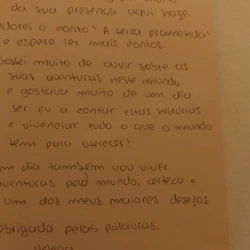 da sua presença aqui hoje.
dorei o conto "A terra prometida"
e espero ler mais contos.
ostei muito de ouvir sobre as
suas aventuras neste mundo,
e gostava muito de um dia
ser eu a contar estas histórias
e vivenciar tudo o que o mundo
tem para oferecer!
m dia também vou viver
aventuras pelo mundo, certeza é
um dos meus maiores desejos.
obrigada pelas palavras.